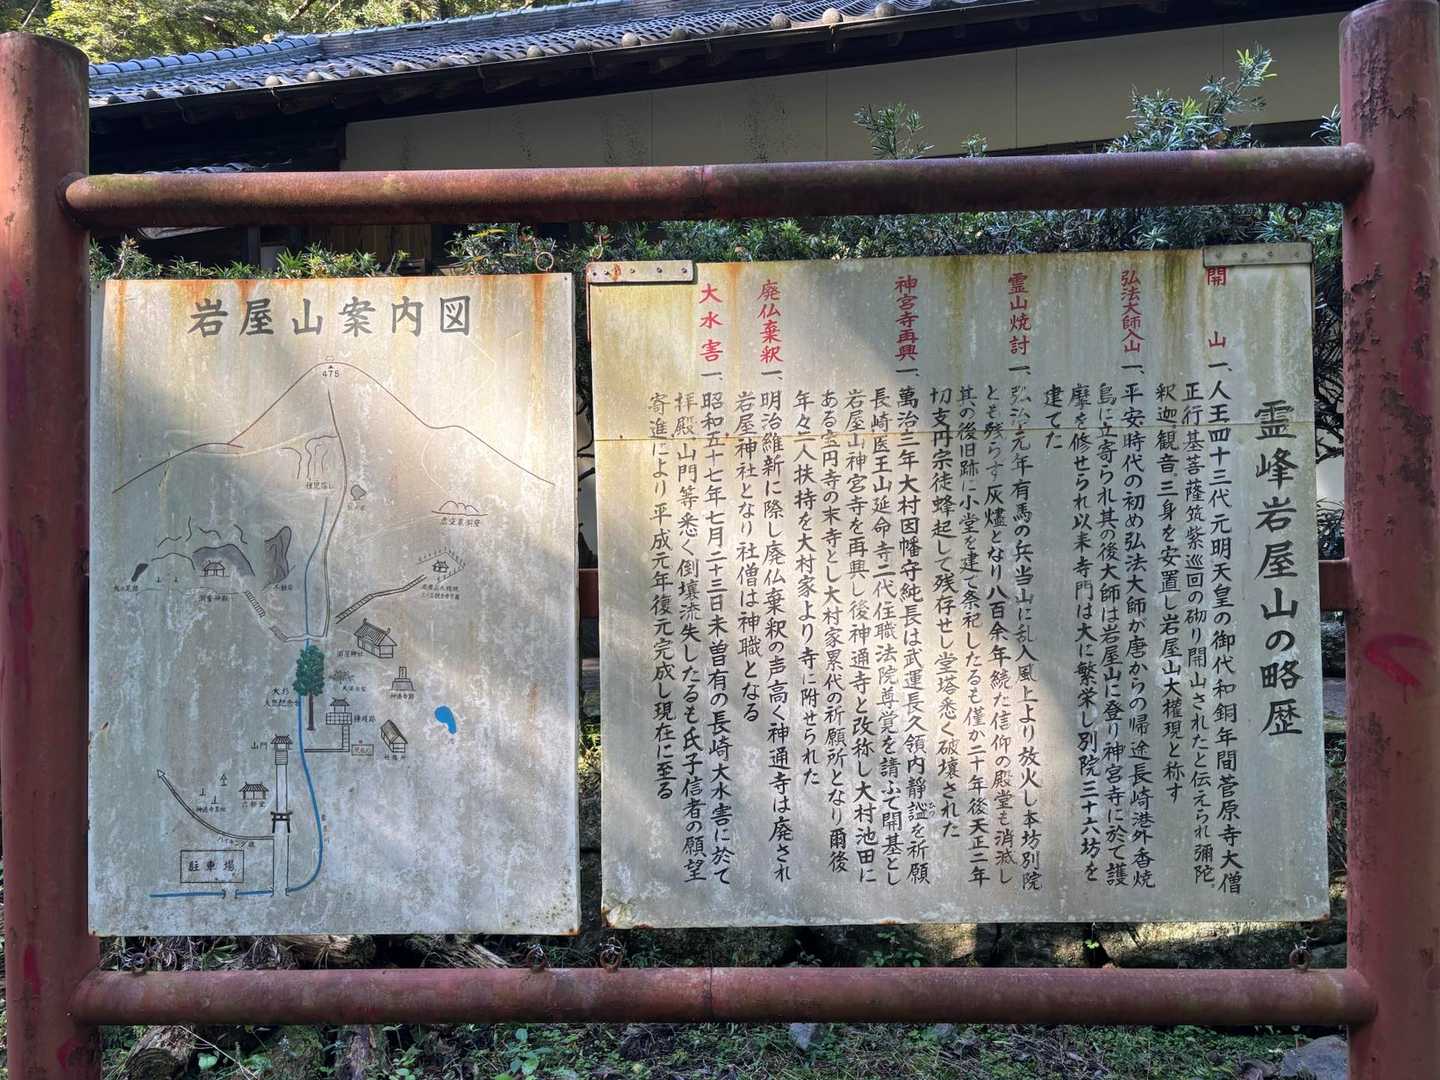 岩屋山案内図
475
稚児落し
洞窟神殿
岩屋神社
神通寺跡
大杉
山門
六部堂
ハイキング道
駐車場
霊峰岩屋山の略歴
開山 一、人王四十三代元明天皇の御代和銅年間菅原寺大僧
正行基菩薩筑紫巡回の砌り開山されたと伝えられ彌陀
釈迦観音三身を安置し岩屋山大權現と称す
弘法大師入山 一、平安時代の初め弘法大師が唐からの帰途長崎港外香焼
島に立寄られ其の後大師は岩屋山に登り神宮寺に於て護
摩を修せられ以来寺門は大に繁栄し別院三十六坊を
建てた
霊山焼討 一、弘治元年有馬の兵当山に乱入風上より放火し本坊別院
とも残らす灰燼となり八百余年続た信仰の殿堂も消滅し
其の後旧跡に小堂を建て祭祀したるも僅か二十年後天正二年
切支丹宗徒蜂起して残存せし堂塔悉く破壊された
神宮寺再興 一、萬治三年大村因幡守純長は武運長久領内靜謐を祈願
長崎医王山延命寺二代住職法院尊覚を請ふて開基とし
岩屋山神宮寺を再興し後神通寺と改称し大村池田に
ある宝円寺の末寺とし大村家累代の祈願所となり爾後
年々二人扶持を大村家より寺に附せられた
廃仏棄釈 一、明治維新に際し廃仏棄釈の声高く神通寺は廃され
岩屋神社となり社僧は神職となる
大水害 一、昭和五十七年七月二十三日未曽有の長崎大水害に於て
拝殿、山門等悉く倒壊流失したるも氏子信者の願望
寄進により平成元年復元完成し現在に至る